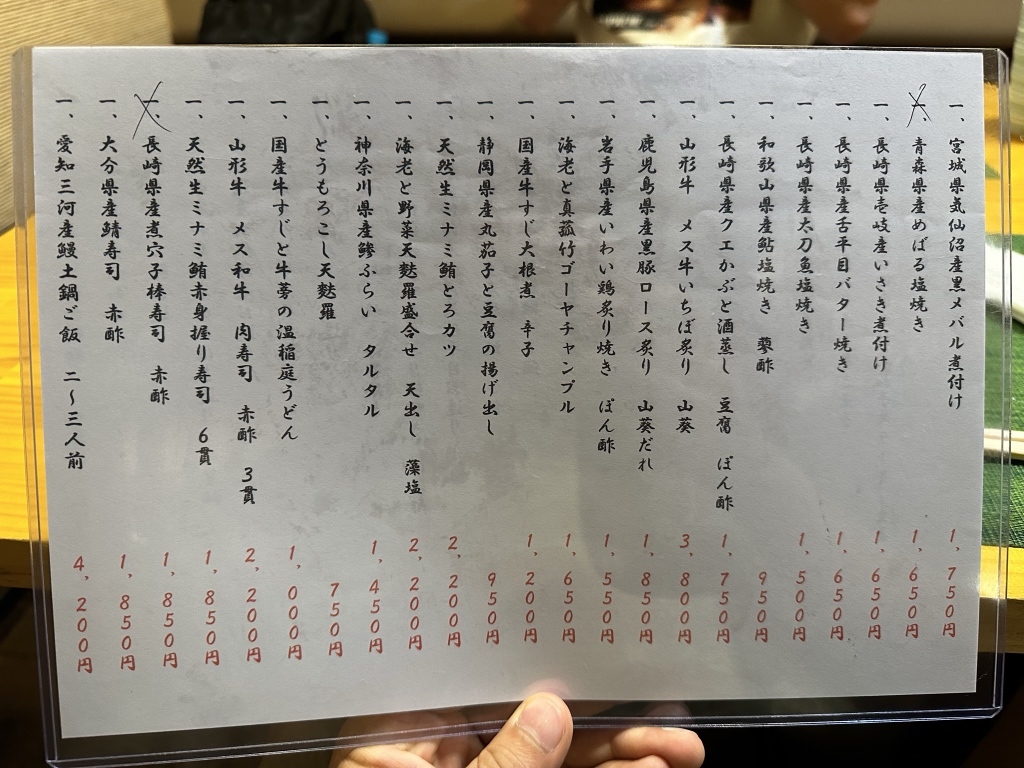 一、宮城県気仙沼産黒メバル煮付け 1,750円
一、青森県産めばる塩焼き 1,650円
一、長崎県壱岐産いさき煮付け 1,650円
一、長崎県産舌平目バター焼き 1,650円
一、長崎県産太刀魚塩焼き 1,500円
一、和歌山県産鮎塩焼き 蓼酢 950円
一、長崎県産クエかぶと酒蒸し 豆腐 ぽん酢 1,750円
一、山形牛 メス牛いちぼ炙り 山葵 3,800円
一、鹿児島県産黒豚ロース炙り 山葵だれ 1,850円
一、岩手県産いわい鶏炙り焼き ぽん酢 1,550円
一、海老と真菰竹ゴーヤチャンプル 1,650円
一、国産牛すじ大根煮 辛子 1,200円
一、静岡県産丸茄子と豆腐の揚げ出し 950円
一、天然生ミナミ鮪とろカツ 2,200円
一、海老と野菜天麩羅盛合せ 天出し 藻塩 2,200円
一、神奈川県産鯵ふらい タルタル 1,450円
一、とうもろこし天麩羅 750円
一、国産牛すじと牛蒡の温稲庭うどん 1,000円
一、山形牛 メス和牛 肉寿司 赤酢 3貫 2,200円
一、天然生ミナミ鮪赤身握り寿司 6貫 1,850円
一、長崎県産煮穴子棒寿司 赤酢 1,850円
一、大分県産鯖寿司 赤酢 1,850円
一、愛知三河産鰻土鍋ご飯 二〜三人前 4,200円